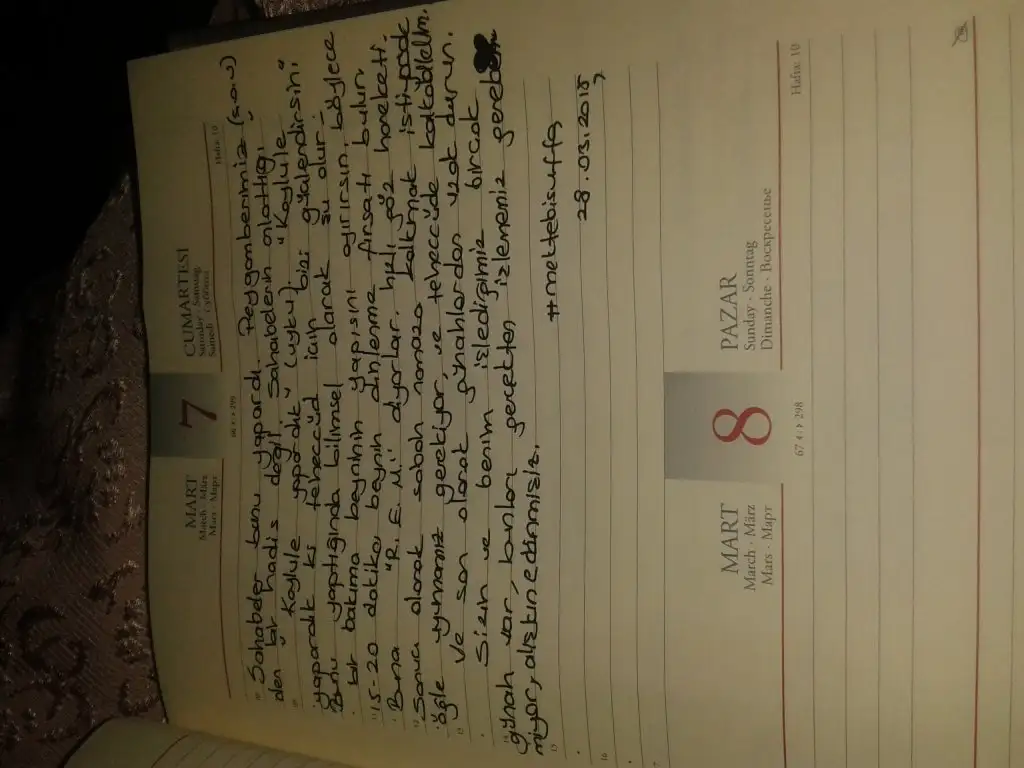 MART
March · März
Mars · Март
7
66 ‹ › 299
CUMARTESİ
Saturday · Samstag
Samedi · Суббота
Hafta: 10
Sahabeler bunu yapardı. Peygamberimiz (s.a.v)
den bir hadis değil. Sahabelerin anlattığı,
"Kaylule yapardık" (uyku). "Kaylule
yapardık ki teheccüd için bizi güçlendirsin".
Bunu yaptığında bilimsel olarak şu olur:
bir bakıma beyninin yapısını ayırırsın, böylece
15-20 dakika beyin dinlenme fırsatı bulur.
Buna "R.E.M." diyorlar. hızlı göz hareketi.
Sonuç olarak sabah namazo kalkmak istiyorsak
öğle uyumamız gerekiyor, ve teheccüde kalkabilelim.
ve son olarak günahlardan uzak durun.
Sizin ve benim işlediğimiz birçok
günah var, bunları geceleten izlememiz gereken
miyor, alışkın edanmısız.
#mektebisuffa
28.03.2015
MART
March · März
Mars · Март
8
67 ‹ › 298
PAZAR
Sunday · Sonntag
Dimanche · Воскресенье
Hafta: 10